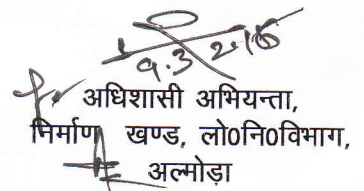 9.3.2018
अधिशासी अभियन्ता,
निर्माण खण्ड, लो0नि0विभाग,
अल्मोड़ा